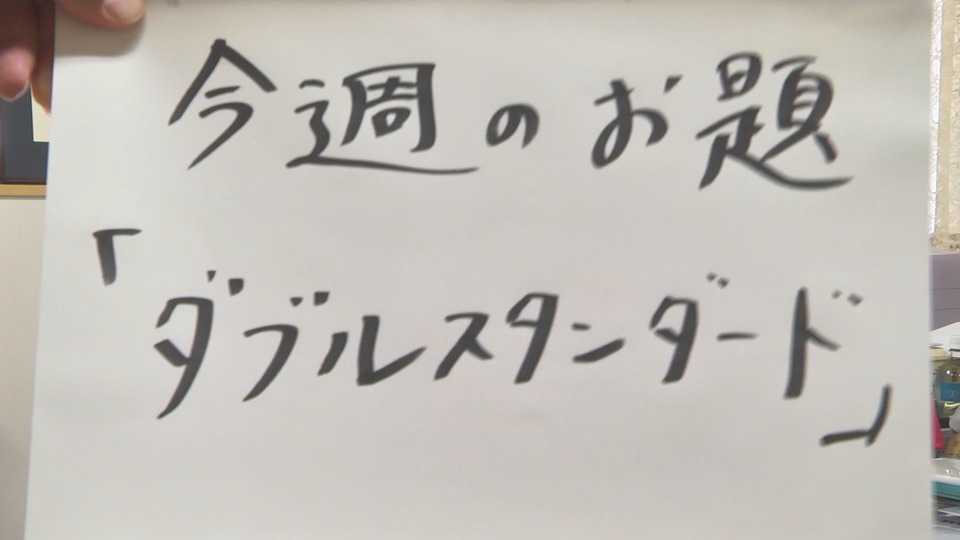 今週のお題
「ダブルスタンダード」